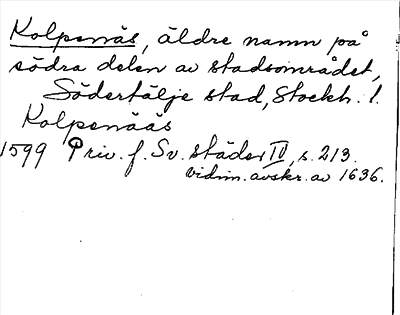 Kolpenäs, äldre namn på
södra delen av stadsområdet,
Södertälje stad, Stockh. l.
Kolpenääs
1599 Priv. f. Sv. städer IV, s. 213.
vidim. avskr. av 1636.